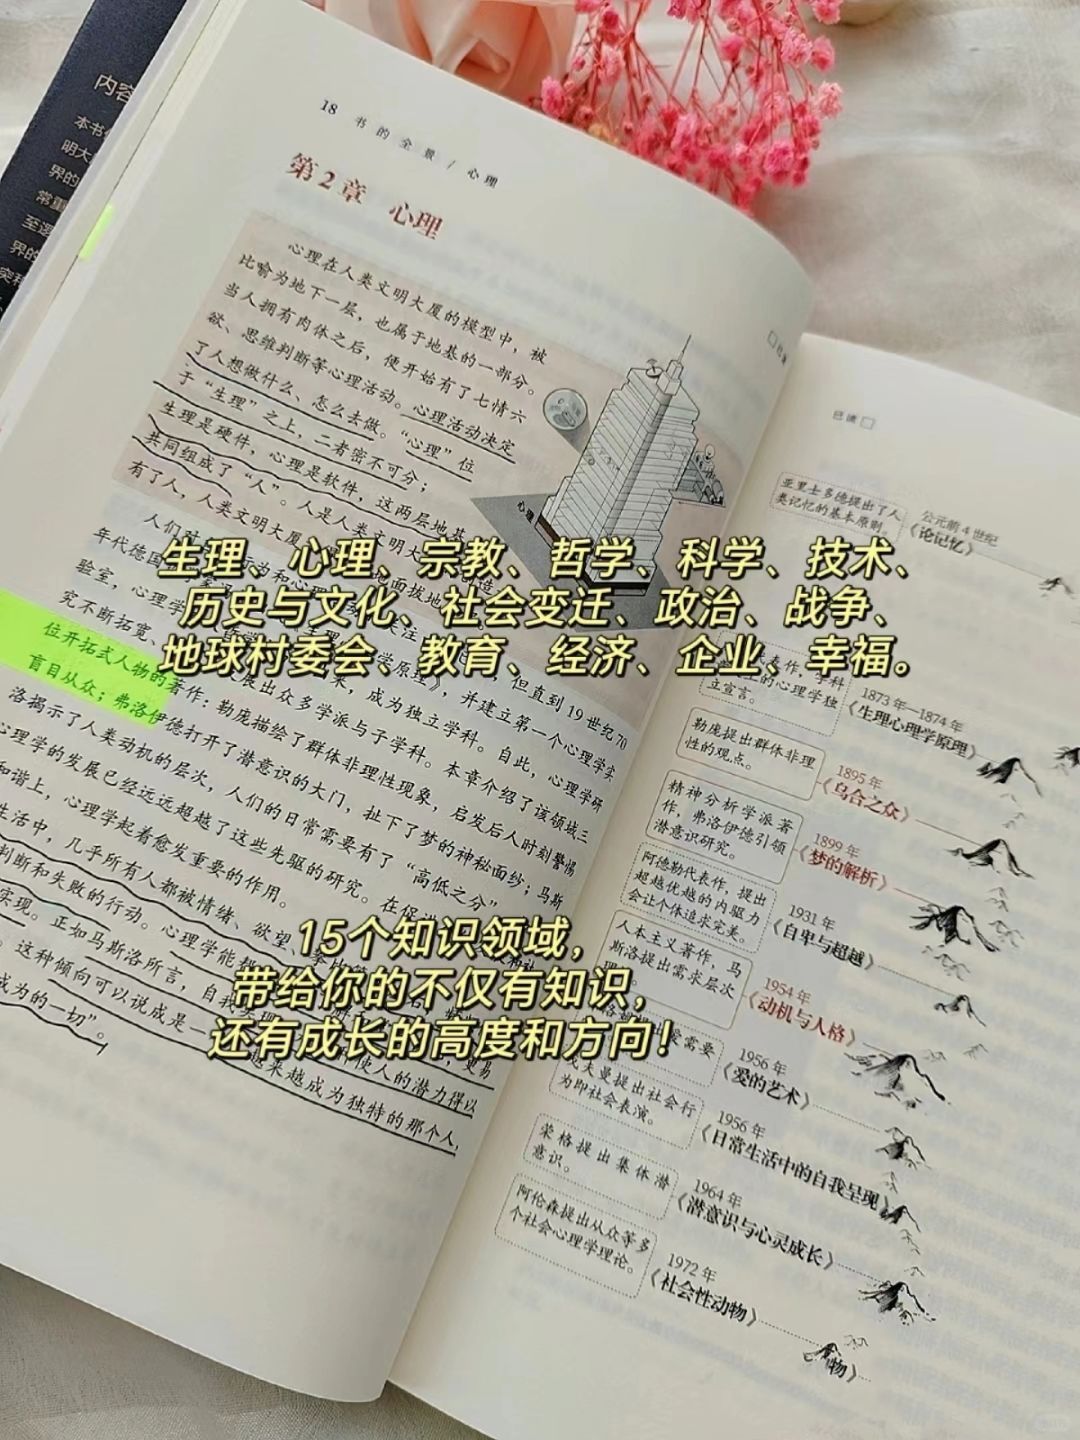 内容
本书
明大
界的
常重
至逻
界的
突
18 书的全景 / 心理
第2章 心理
心理在人类文明大厦的模型中，被
比喻为地下一层，也属于地基的一部分。
当人拥有肉体之后，便开始有了七情六
欲、思维判断等心理活动。心理活动决定
了人想做什么、怎么去做。“心理”位
于“生理”之上，二者密不可分；
生理是硬件，心理是软件，这两层地基
共同组成了“人”。人是人类文明大
有了人，人类文明大厦
地面拔地
心理
人们对
年代德国
验室，心理学
究不断拓宽、
发展出众多学派与子学科。本章介绍了该领域三
，但直到19世纪70
学原理》，并建立第一个心理学实
来，成为独立学科。自此，心理学研
位开拓式人物的著作：勒庞描绘了群体非理性现象，启发后人时刻警惕
盲目从众；弗洛伊德打开了潜意识的大门，扯下了梦的神秘面纱；马斯
洛揭示了人类动机的层次，人们的日常需要有了“高低之分”
心理学的发展已经远远超越了这些先驱的研究。在促进
和谐上，心理学起着愈发重要的作用。
生活中，几乎所有人都被情绪、欲望、
判断和失败的行动。心理学能
实现。正如马斯洛所言，自我
。这种倾向可以说成是一
使人的潜力得以
成为的一切”。
越来越成为独特的那个人，
生理、心理、宗教、哲学、科学、技术、
历史与文化、社会变迁、政治、战争、
地球村委会、教育、经济、企业、幸福。
15个知识领域，
带给你的不仅有知识，
还有成长的高度和方向！
已读
已读
亚里士多德提出了人
类记忆的基本原则。
公元前4世纪
《论记忆》
代表作，学科
上的心理学独
立宣言。
1873年—1874年
《生理心理学原理》
勒庞提出群体非理
性的观点。
1895年
《乌合之众》
精神分析学派著
作，弗洛伊德引领
潜意识研究。
1899年
《梦的解析》
阿德勒代表作，提出
超越优越的内驱力
会让个体追求完美。
1931年
《自卑与超越》
人本主义著作，马
斯洛提出需求层次
1954年
《动机与人格》
爱需要
1956年
《爱的艺术》
戈夫曼提出社会行
为即社会表演。
1956年
《日常生活中的自我呈现》
荣格提出集体潜
意识。
1964年
《潜意识与心灵成长》
阿伦森提出从众等多
个社会心理学理论。
1972年
《社会性动物》
物》